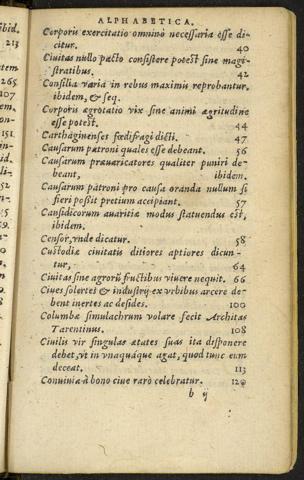 ALPHABETICA.
Corporis exercitatio omnino necessaria esse di-
citur. 40
Ciuitas nullo pacto consistere potest sine magi-
stratibus. 42
Consilia varia in rebus maximis reprobantur.
ibidem, & seq.
Corporis ægrotatio vix sine animi ægritudine
esse potest. 44
Carthaginenses fœdifragi dicti. 47
Causarum patroni quales esse debeant. 56
Causarum præuaricatores qualiter puniri de-
beant, ibidem.
Causarum patroni pro causa oranda nullum si
fieri poßit pretium accipiant. 57
Cansidicorum auaritiæ modus statuendus est,
ibidem.
Censor, vnde dicatur. 58
Custodiæ ciuitatis ditiores aptiores dicun-
tur, 64
Ciuitas sine agrorū fructibus viuere nequit. 66
Ciues solertes & industrij ex vrbibus arcere de-
bent inertes ac desides. 100
Columbæ simulachrum volare fecit Architas
Tarentinus. 108
Ciuilis vir singulas ætates suas ita disponere
debet, vt in vnaquáque agat, quod tunc eum
deceat. 113
Conuiuia à bono ciue rarò celebratur. 120
b ij
ibid.
213
265
107
151
132